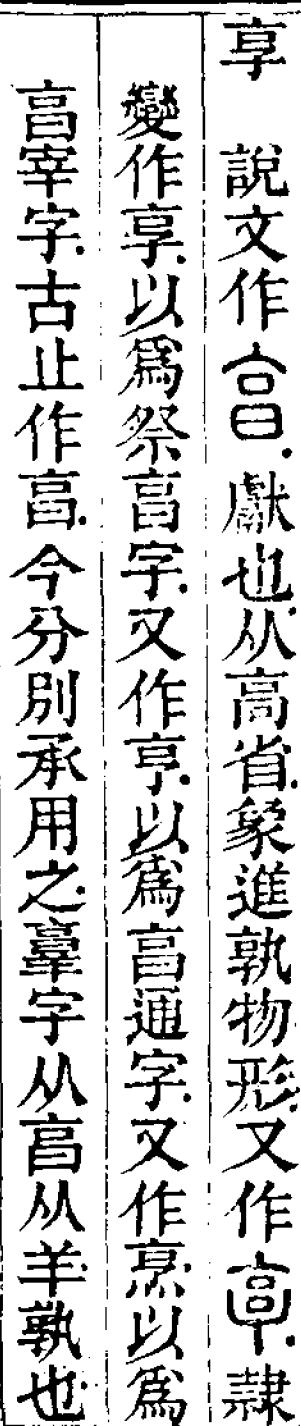 享　說文作𠅠獻也从高省象進孰物形又作𦤓隸
變作享以爲祭亯字又作亨以爲亯通字又作烹以爲
亯宰字古止作亯今分別承用之𦎫字从亯从羊孰也